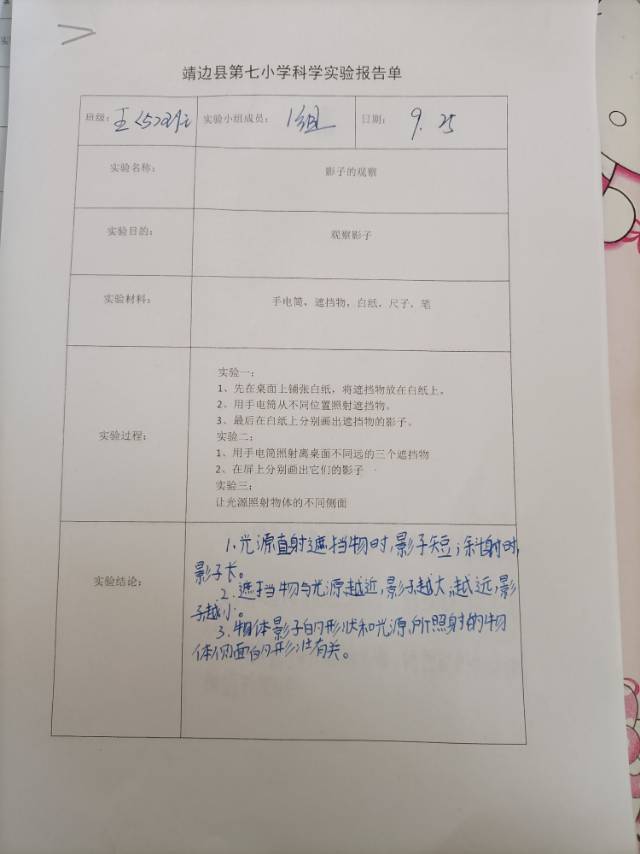 靖边县第七小学科学实验报告单
班级: 五<5>班 实验小组成员: 1组 日期: 9.25
实验名称: 影子的观察
实验目的: 观察影子
实验材料: 手电筒、遮挡物、白纸、尺子、笔
实验过程:
实验一:
1、先在桌面上铺张白纸,将遮挡物放在白纸上。
2、用手电筒从不同位置照射遮挡物。
3、最后在白纸上分别画出遮挡物的影子。
实验二:
1、用手电筒照射离桌面不同远的三个遮挡物
2、在屏上分别画出它们的影子
实验三:
让光源照射物体的不同侧面
实验结论:
1.光源直射遮挡物时,影子短;斜射时,
影子长。
2.遮挡物与光源越近,影子越大,越远,影
子越小。
3.物体影子的形状和光源所照射的物
体侧面的形状有关。